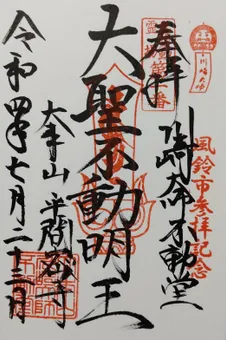 川崎大師
風鈴市参拝記念
奉拝
川崎大師不動堂
大聖不動明王
大本山平間寺
令和四年七月二十三日